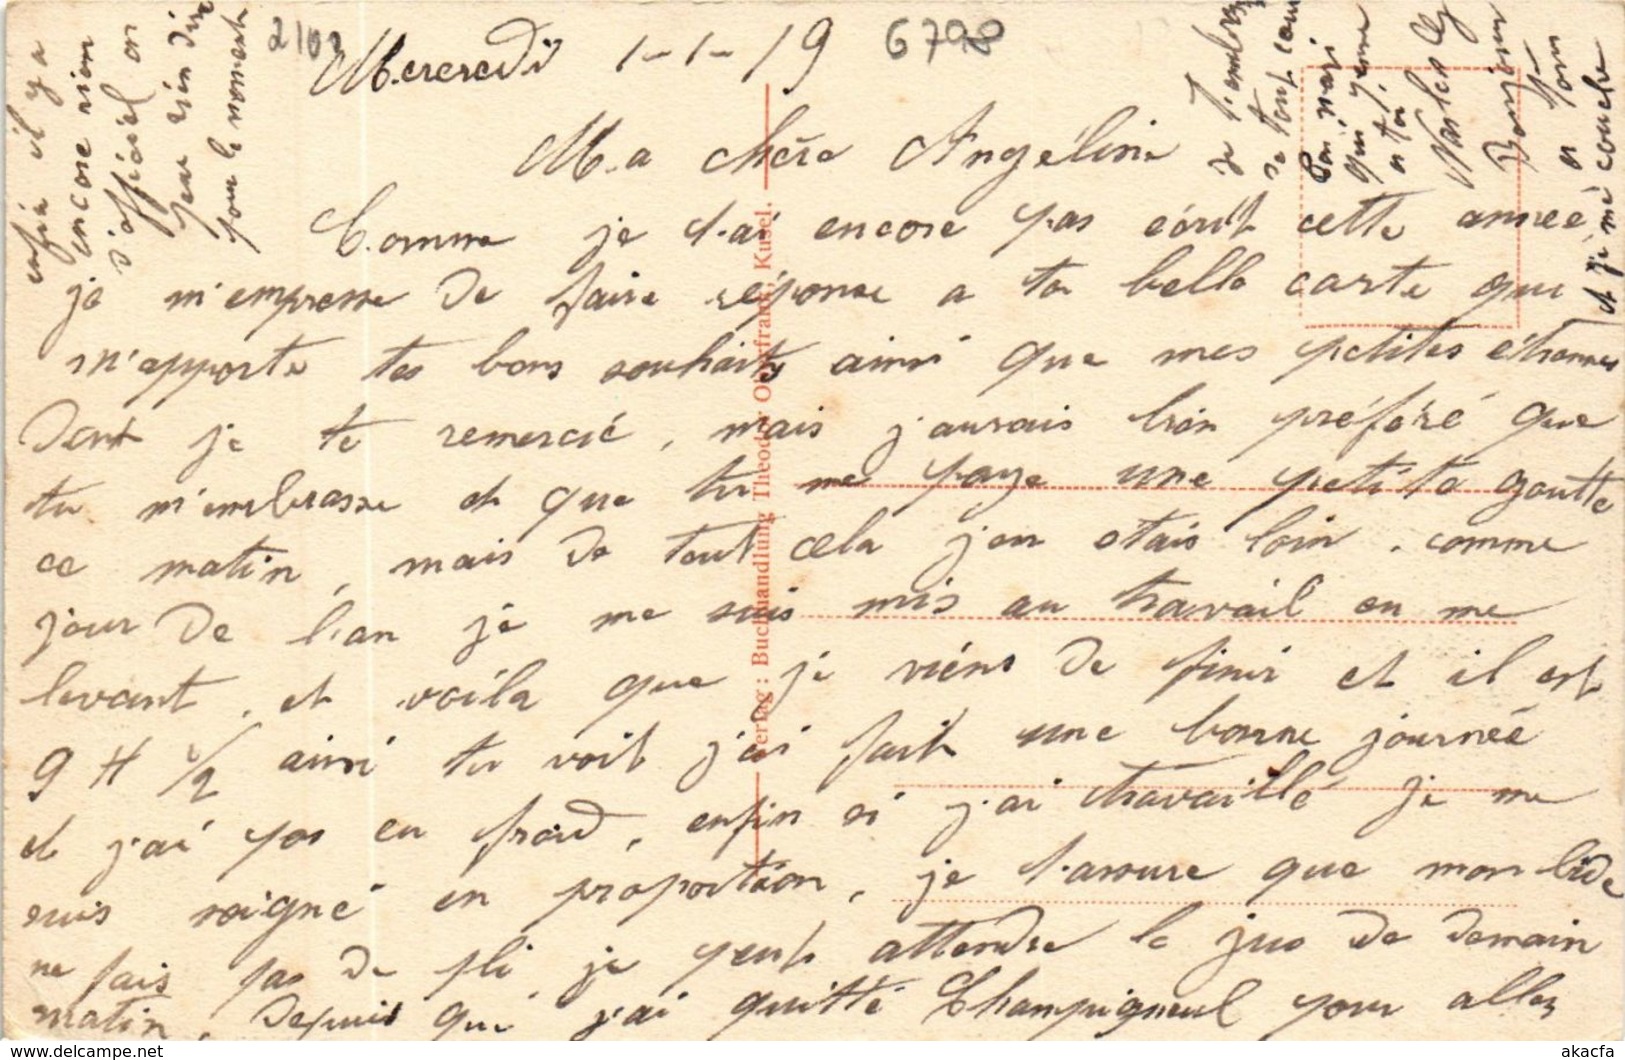 2102
6798
Mercredi 1-1-19
Ma chère Angéline
Comme je t'ai encore pas écrit cette annee
je m'empresse de faire réponse a ta belle carte qui
m'apporte tes bons souhaits ainsi que mes petites étrennes
Dont je te remercié, mais j'aurais bien préféré que
tu m'embrasse et que tu me paye une petite goutte
ce matin, mais de tout cela j'en etais loin. comme
jour de l'an je me suis mis au travail en me
levant, et voila que je viéns de finir et il est
9 H 1/2 ainsi tu voit j'ai fait une bonne journée
et j'ai pas eu froid, enfin si j'ai travaillé je me
suis soigné en proportion, je t'assure que mon bide
ne fais pas de pli, je peut attendre le jus de demain
matin, Depuis que j'ai quitté Champigneul pour aller
enfin il y a
encore rien
d'officiel on
peux rien dire
pour le moment
Je t'embrasse
de tout coeur
ton mari
qui pense
a toi
Charles
Bonjour
a tous
et je me couche
Verlag: Buchhandlung Theodor Oberfrank, Kusel.
akacfa